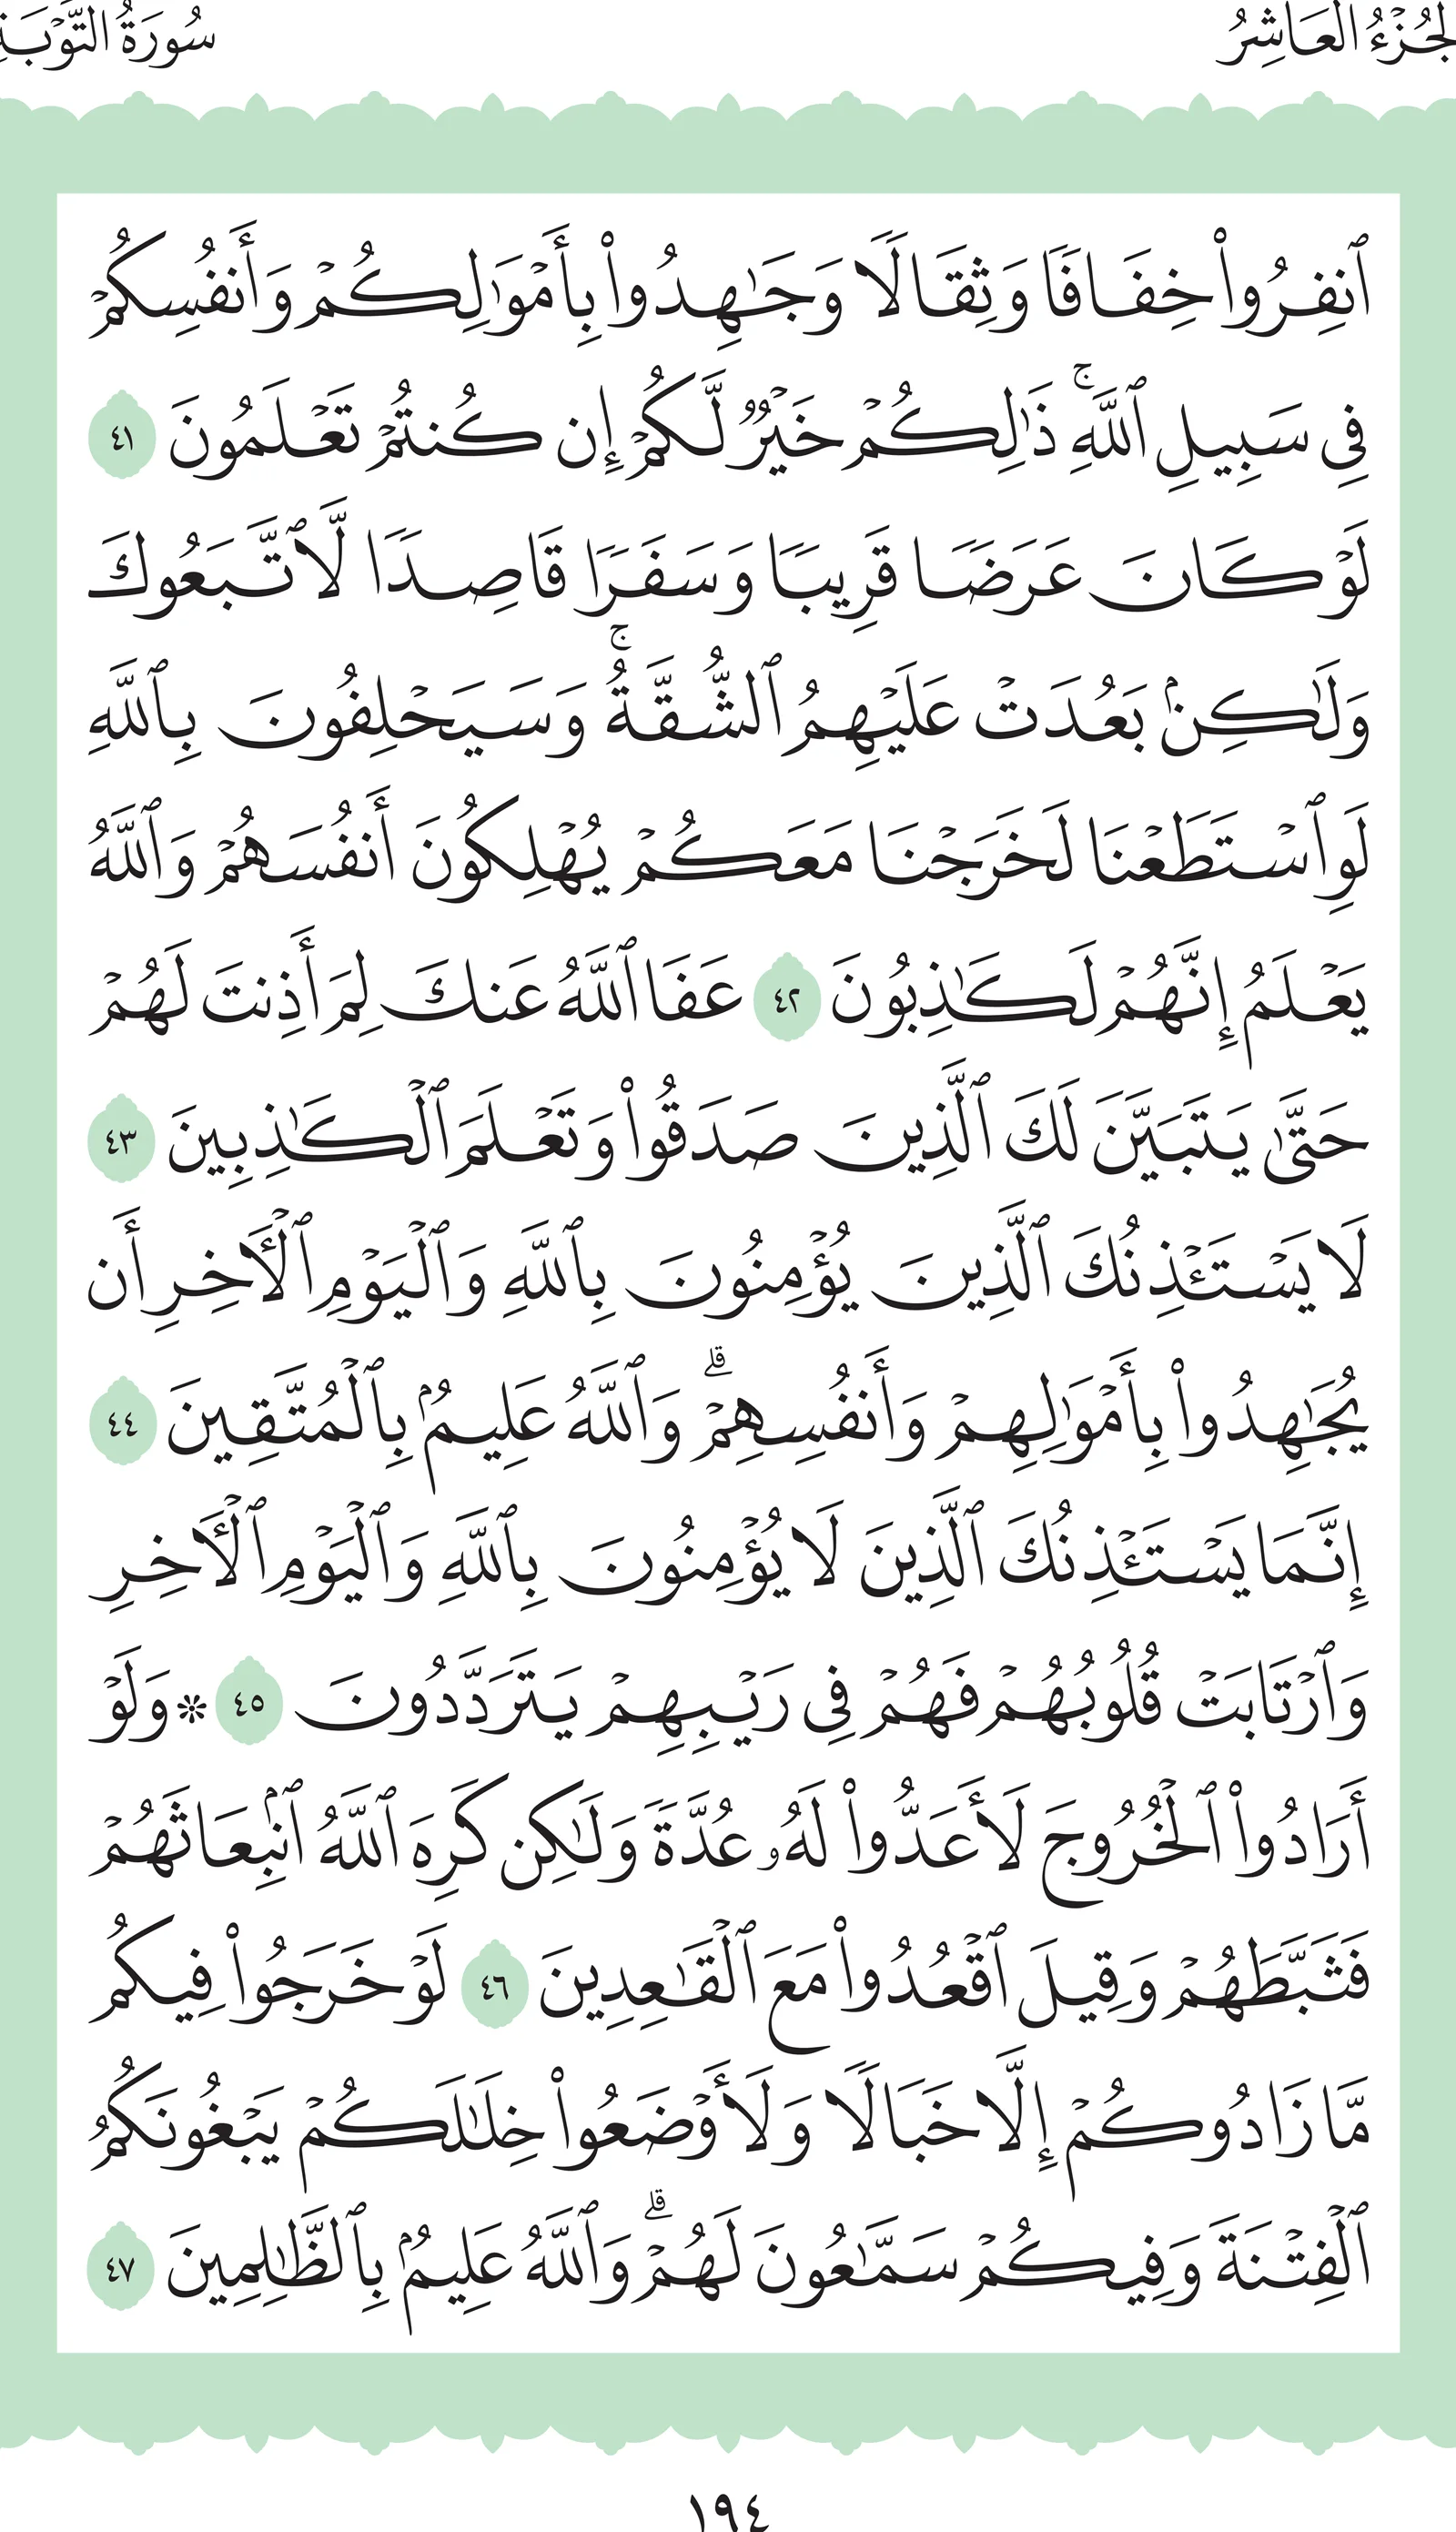 الجُزْءُ العَاشِرُ سُورَةُ التَّوْبَةِ
ٱنفِرُوا۟ خِفَافًا وَثِقَالًا وَجَٰهِدُوا۟ بِأَمْوَٰلِكُمْ وَأَنفُسِكُمْ
فِى سَبِيلِ ٱللَّهِ ۚ ذَٰلِكُمْ خَيْرٌ لَّكُمْ إِن كُنتُمْ تَعْلَمُونَ ٤١
لَوْ كَانَ عَرَضًا قَرِيبًا وَسَفَرًا قَاصِدًا لَّٱتَّبَعُوكَ
وَلَٰكِنۢ بَعُدَتْ عَلَيْهِمُ ٱلشُّقَّةُ ۚ وَسَيَحْلِفُونَ بِٱللَّهِ
لَوِ ٱسْتَطَعْنَا لَخَرَجْنَا مَعَكُمْ يُهْلِكُونَ أَنفُسَهُمْ وَٱللَّهُ
يَعْلَمُ إِنَّهُمْ لَكَٰذِبُونَ ٤٢ عَفَا ٱللَّهُ عَنكَ لِمَ أَذِنتَ لَهُمْ
حَتَّىٰ يَتَبَيَّنَ لَكَ ٱلَّذِينَ صَدَقُوا۟ وَتَعْلَمَ ٱلْكَٰذِبِينَ ٤٣
لَا يَسْتَـْٔذِنُكَ ٱلَّذِينَ يُؤْمِنُونَ بِٱللَّهِ وَٱلْيَوْمِ ٱلْـَٔاخِرِ أَن
يُجَٰهِدُوا۟ بِأَمْوَٰلِهِمْ وَأَنفُسِهِمْ ۗ وَٱللَّهُ عَلِيمٌۢ بِٱلْمُتَّقِينَ ٤٤
إِنَّمَا يَسْتَـْٔذِنُكَ ٱلَّذِينَ لَا يُؤْمِنُونَ بِٱللَّهِ وَٱلْيَوْمِ ٱلْـَٔاخِرِ
وَٱرْتَابَتْ قُلُوبُهُمْ فَهُمْ فِى رَيْبِهِمْ يَتَرَدَّدُونَ ٤٥ ۞ وَلَوْ
أَرَادُوا۟ ٱلْخُرُوجَ لَأَعَدُّوا۟ لَهُۥ عُدَّةً وَلَٰكِن كَرِهَ ٱللَّهُ ٱنۢبِعَاثَهُمْ
فَثَبَّطَهُمْ وَقِيلَ ٱقْعُدُوا۟ مَعَ ٱلْقَٰعِدِينَ ٤٦ لَوْ خَرَجُوا۟ فِيكُم
مَّا زَادُوكُمْ إِلَّا خَبَالًا وَلَأَوْضَعُوا۟ خِلَٰلَكُمْ يَبْغُونَكُمُ
ٱلْفِتْنَةَ وَفِيكُمْ سَمَّٰعُونَ لَهُمْ ۗ وَٱللَّهُ عَلِيمٌۢ بِٱلظَّٰلِمِينَ ٤٧
١٩٤